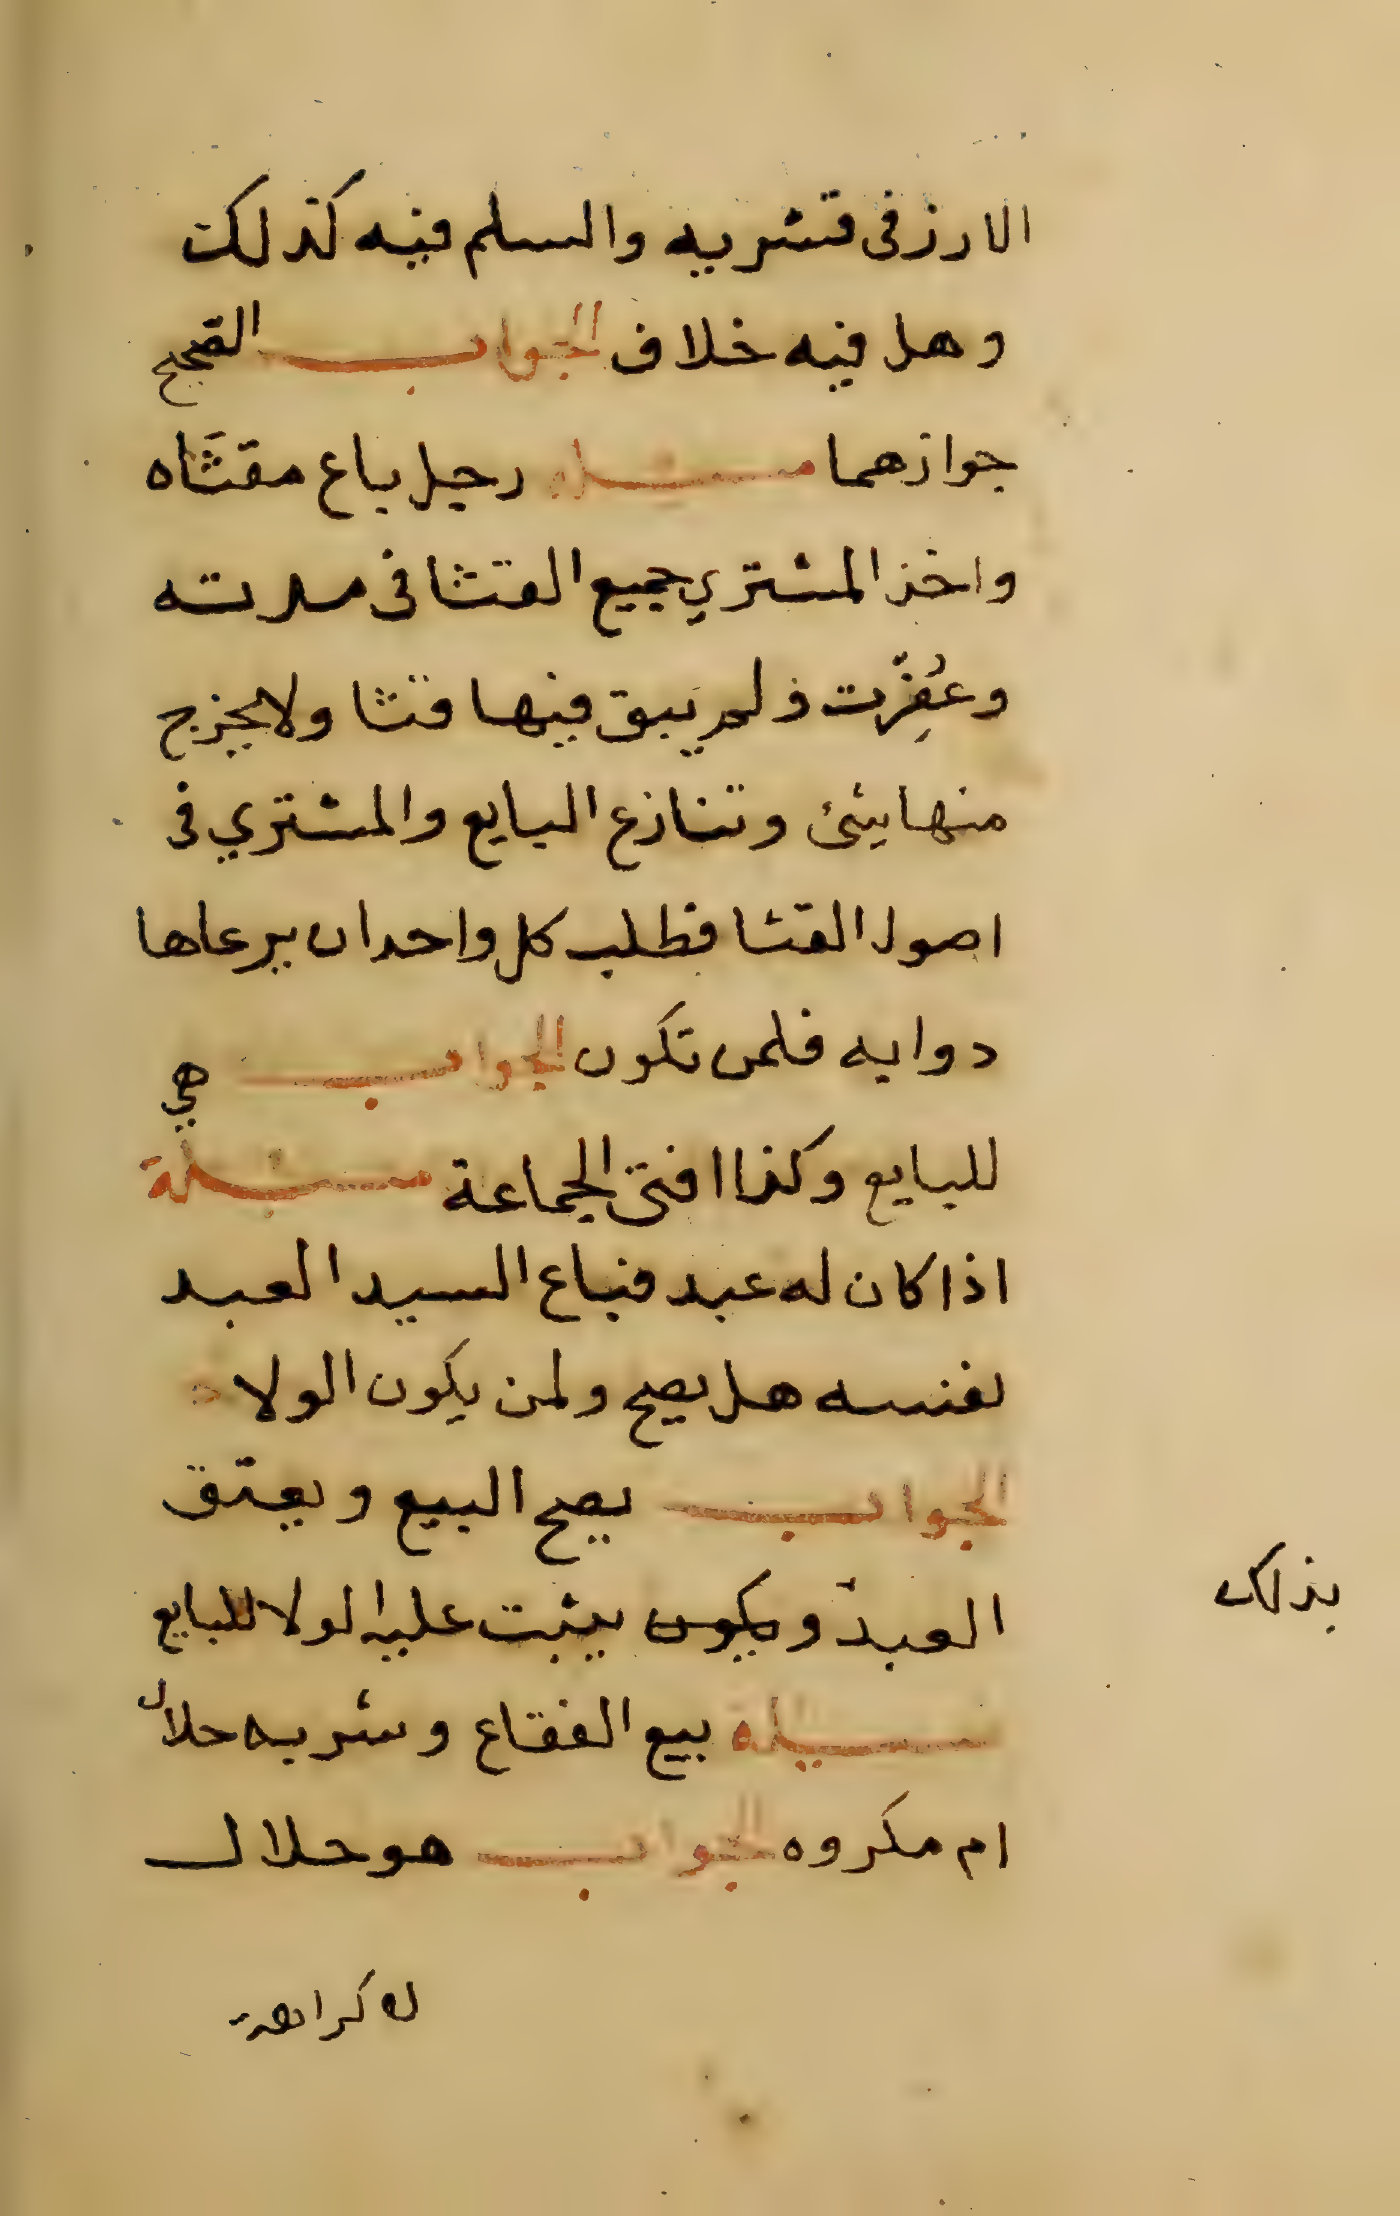 الارز فى قشريه والسلم فيه كذلك
وهل فيه خلاف الجواب الصحيح
جوازهما مسئله رجل باع مقثاه
واخذ المشتري جميع القثا فى مدته
وعُفِرّت ولم يبق فيها قثا ولا يخرج
منها شئ وتنازع البايع والمشتري فى
اصول القثا فطلب كل واحد ان يرعاها
دوابه فلمن تكون الجواب هي
للبايع وكذا افتى الجماعة مسئلة
اذا كان له عبد فباع السيد العبد
نفسه هل يصح ولمن يكون الولا
الجواب يصح البيع ويعتق
العبد ويكون يثبت عليه الولا للبايع
بذلك
مسيلة بيع الفقاع وشربه حلال
ام مكروه الجواب هو حلال
لا كراهة